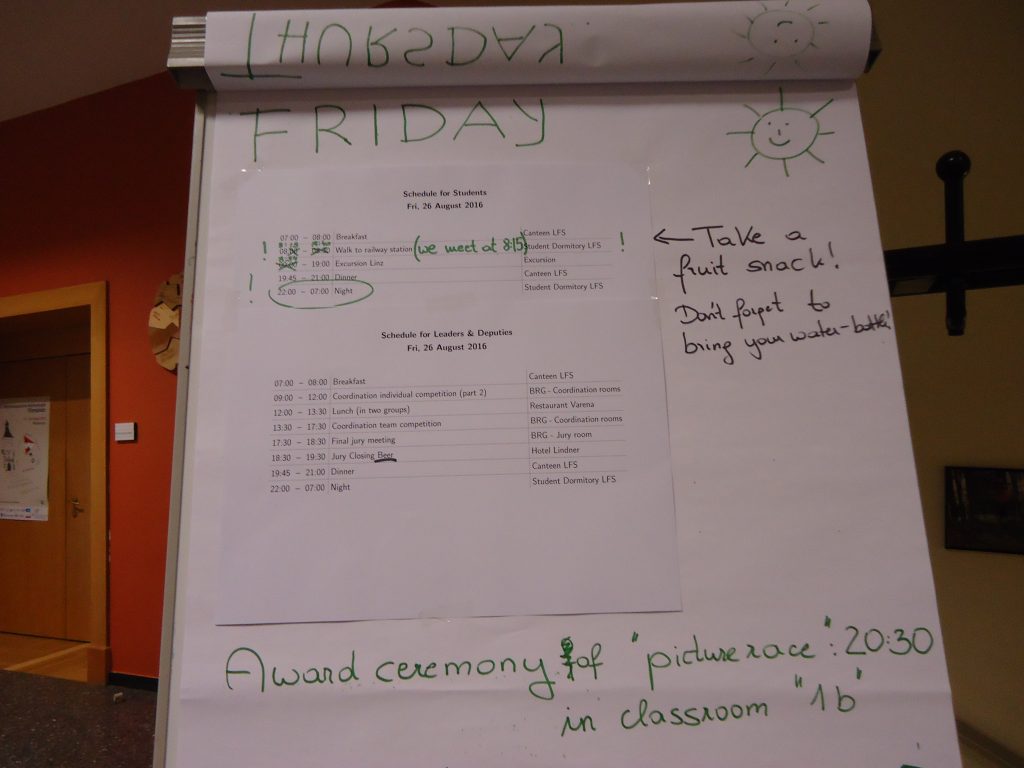 THURSDAY
FRIDAY
Schedule for Students
Fri, 26 August 2016
07:00 – 08:00 Breakfast Canteen LFS
Walk to railway station (we meet at 8:15) Student Dormitory LFS
! !
– 19:00 Excursion Linz Excursion
19:45 – 21:00 Dinner Canteen LFS
! 22:00 – 07:00 Night Student Dormitory LFS
← Take a
fruit snack!
Don't forget to
bring your water-bottle!
Schedule for Leaders & Deputies
Fri, 26 August 2016
07:00 – 08:00 Breakfast Canteen LFS
09:00 – 12:00 Coordination individual competition (part 2) BRG - Coordination rooms
12:00 – 13:30 Lunch (in two groups) Restaurant Varena
13:30 – 17:30 Coordination team competition BRG - Coordination rooms
17:30 – 18:30 Final jury meeting BRG - Jury room
18:30 – 19:30 Jury Closing Beer Hotel Lindner
19:45 – 21:00 Dinner Canteen LFS
22:00 – 07:00 Night Student Dormitory LFS
Award ceremony of "picture race": 20:30
in classroom "1b"